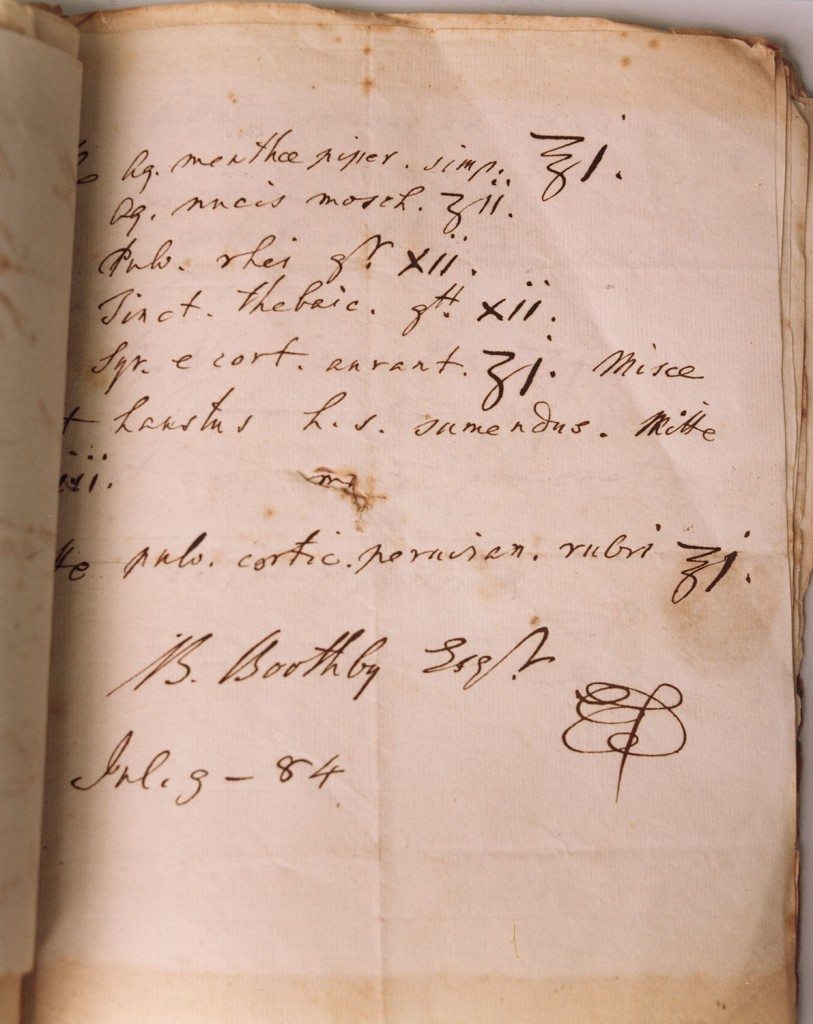 Aq. menthæ piper. simp. ℥j.
Aq. nucis mosch. ʒii.
Pulv. rhei gr. xii.
Tinct. thebaic. gtt. xii.
Syr. e cort. aurant. ʒj. Misce
t haustus h.s. sumendus. Mitte
iii.
tte pulv. cortic. peruvian. rubri ℥j.
B. Boothby Esqr.
Jul. 9 – 84